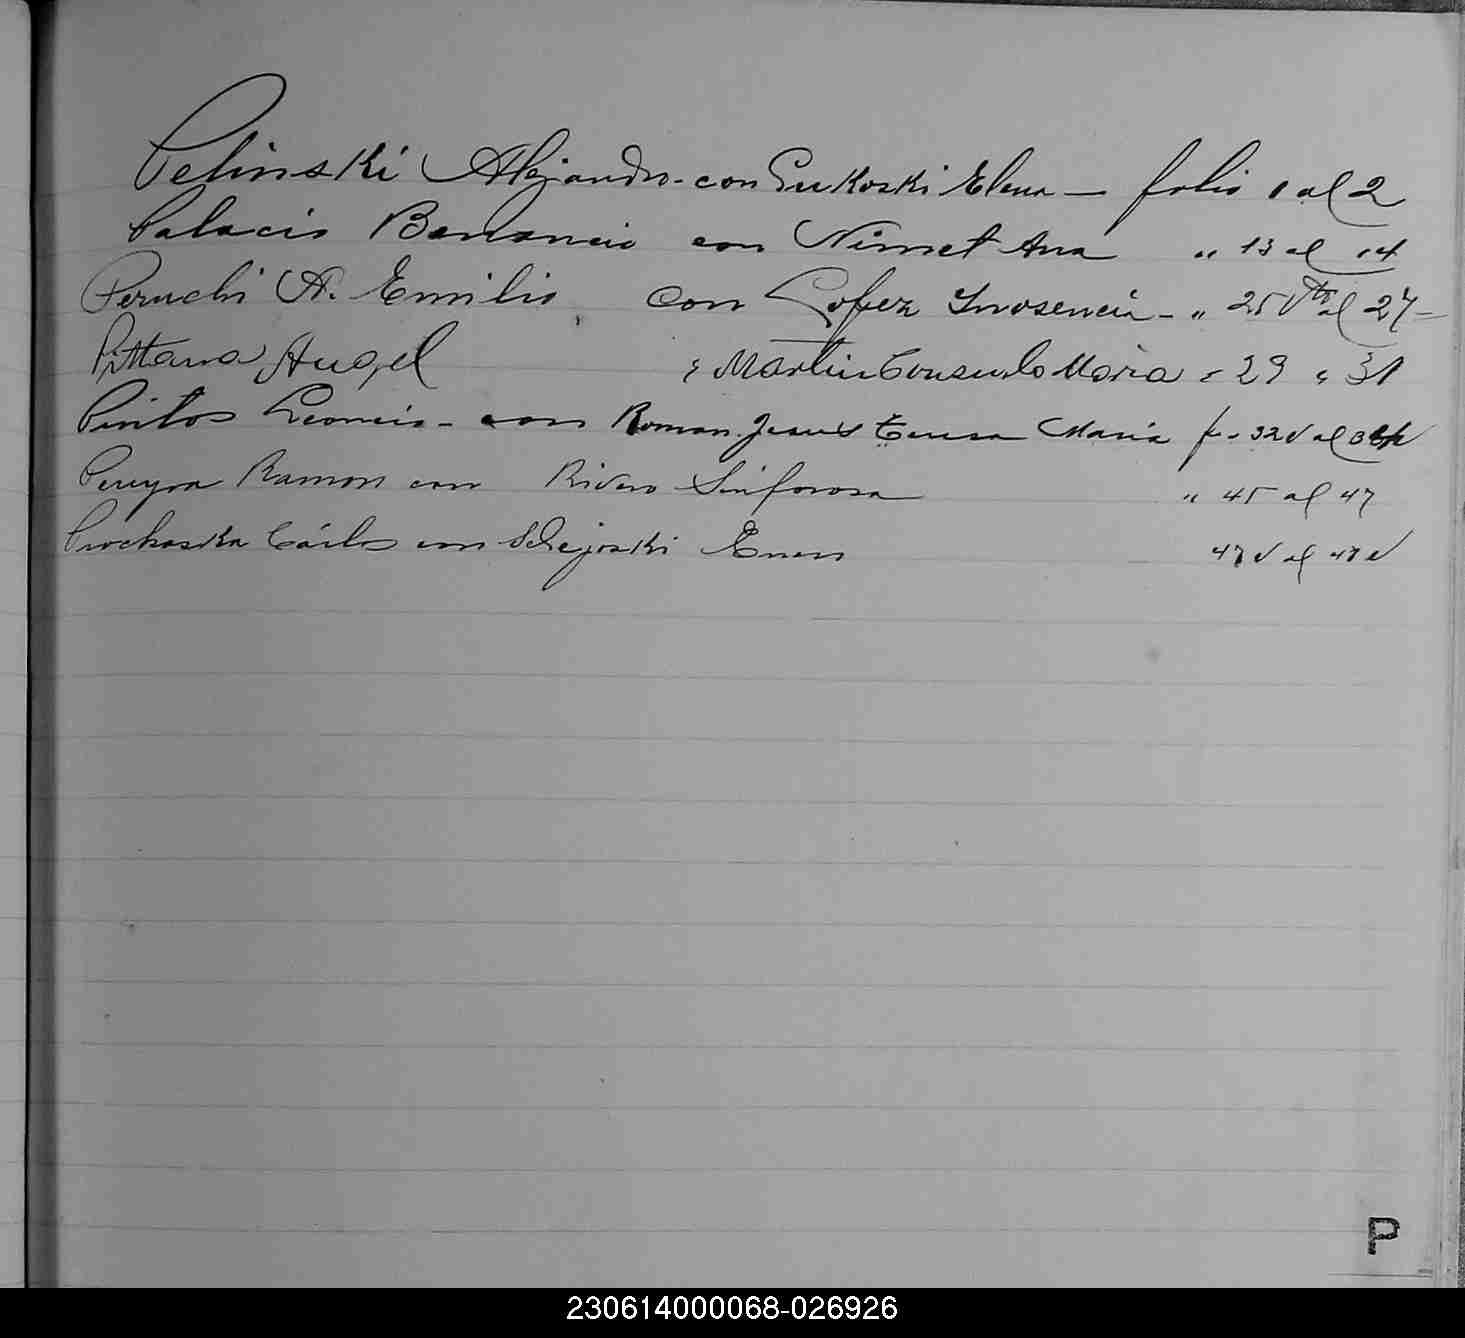 Pelinski Alejandro - con Sukoski Elena - folio 1 al 2
Palacio Benancio con Nimet Ana " 13 al 14
Peruchi A. Emilio con Lopez Inosencia - " 25 Vto al 27 -
Pittana Angel " Martin Consuelo Maria " 29 " 31
Pintos Leoncio - con Roman Jesus Teresa Maria f - 32 v al
Pereyra Ramon con Rivero Sinforosa " 45 al 47
Prochaska Cárlos con Emma 47 v al v
P
230614000068-026926